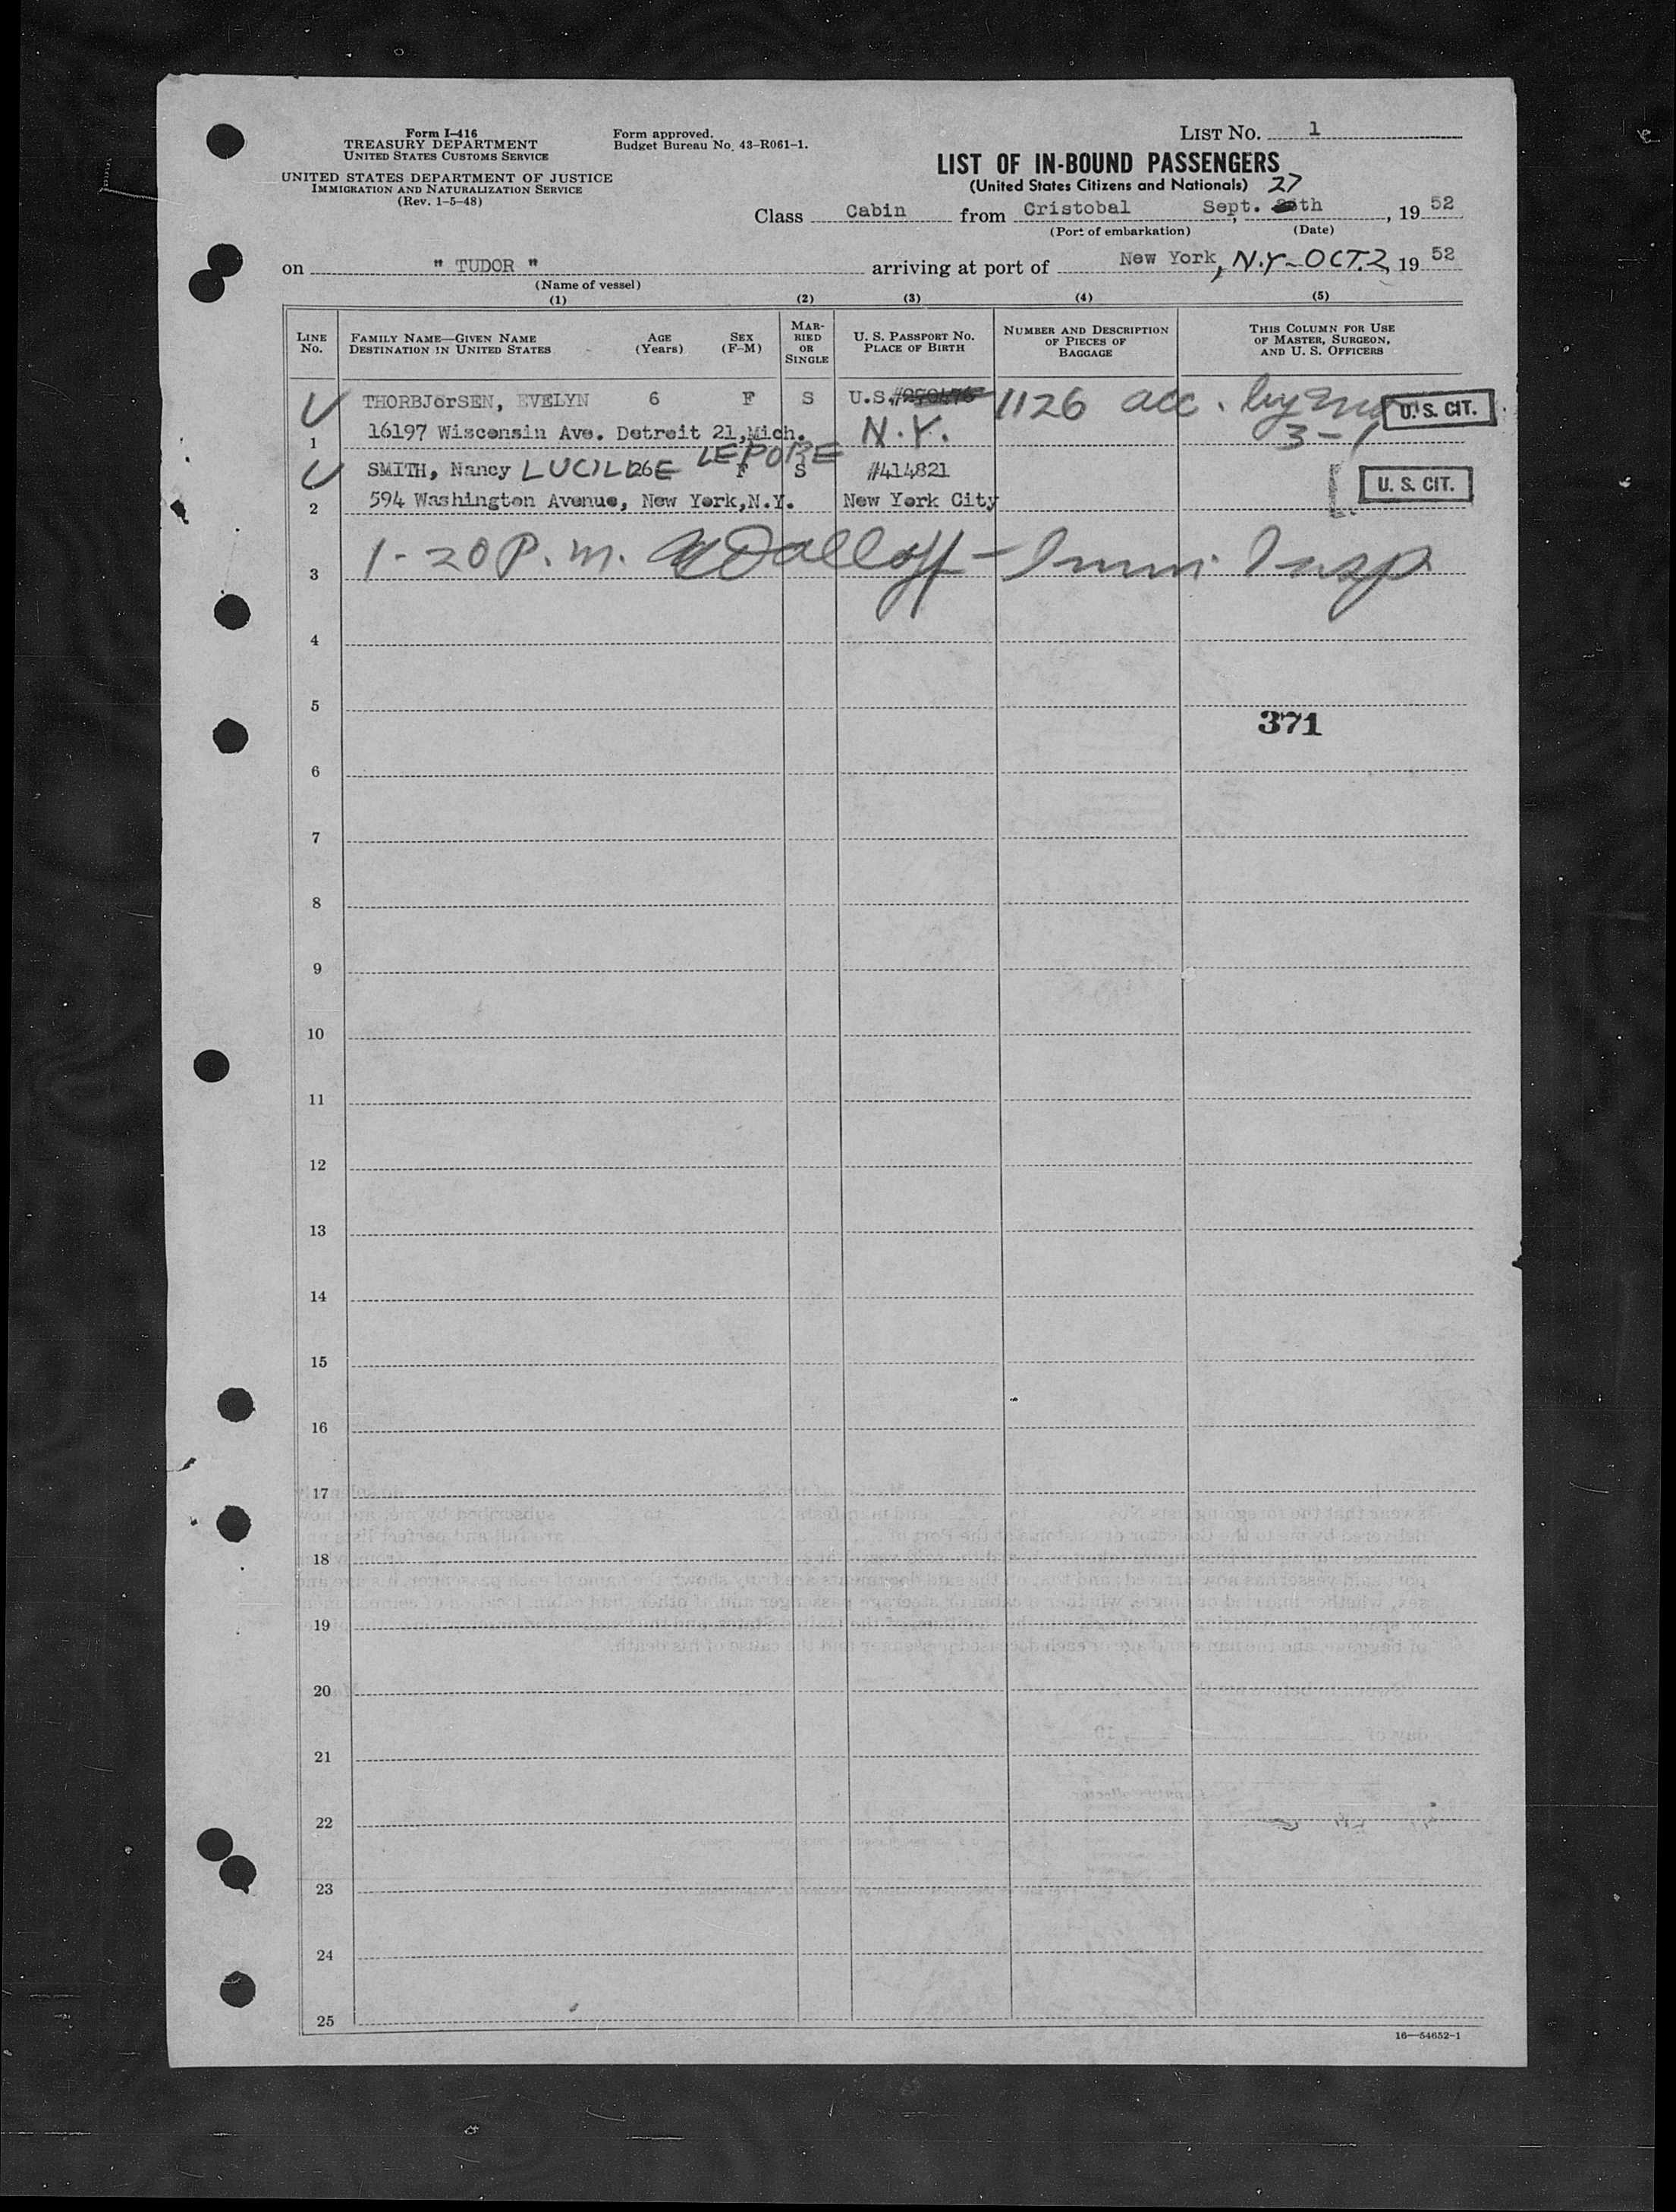 Form I-416
TREASURY DEPARTMENT
UNITED STATES CUSTOMS SERVICE
UNITED STATES DEPARTMENT OF JUSTICE
IMMIGRATION AND NATURALIZATION SERVICE
(Rev. 1-5-48)
Form approved.
Budget Bureau No. 43-R061-1.
LIST No. 1
LIST OF IN-BOUND PASSENGERS
(United States Citizens and Nationals)
27
Class Cabin from Cristobal, Sept. th, 19 52
(Port of embarkation) (Date)
on " TUDOR " arriving at port of New York, N.Y-OCT.2, 19 52
(Name of vessel)
(1) (2) (3) (4) (5)
LINE No.
FAMILY NAME—GIVEN NAME
DESTINATION IN UNITED STATES
AGE
(Years)
SEX
(F-M)
MAR-
RIED
OR
SINGLE
U. S. PASSPORT NO.
PLACE OF BIRTH
NUMBER AND DESCRIPTION
OF PIECES OF
BAGGAGE
THIS COLUMN FOR USE
OF MASTER, SURGEON,
AND U. S. OFFICERS
THORBJørSEN, EVELYN 6 F S U.S.# 1126 acc. by U. S. CIT.
1 16197 Wisconsin Ave. Detroit 21,Mich. N.Y. 3-1
LEPORE
SMITH, Nancy LUCILLE 26 F S #414821 U. S. CIT.
2 594 Washington Avenue, New York,N.Y. New York City
3 1-20 P.m. Imm. Insp
4
5
371
6
7
8
9
10
11
12
13
14
15
16
17
18
19
20
21
22
23
24
25
16—54652-1